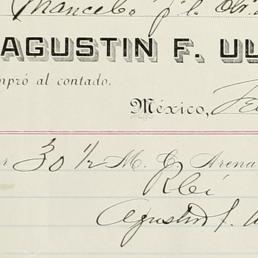 Mancebo
AGUSTIN F. UL
mpró al contado.
México, Fe
30 ½ M. C. Arena
Rbí
Agustin f.